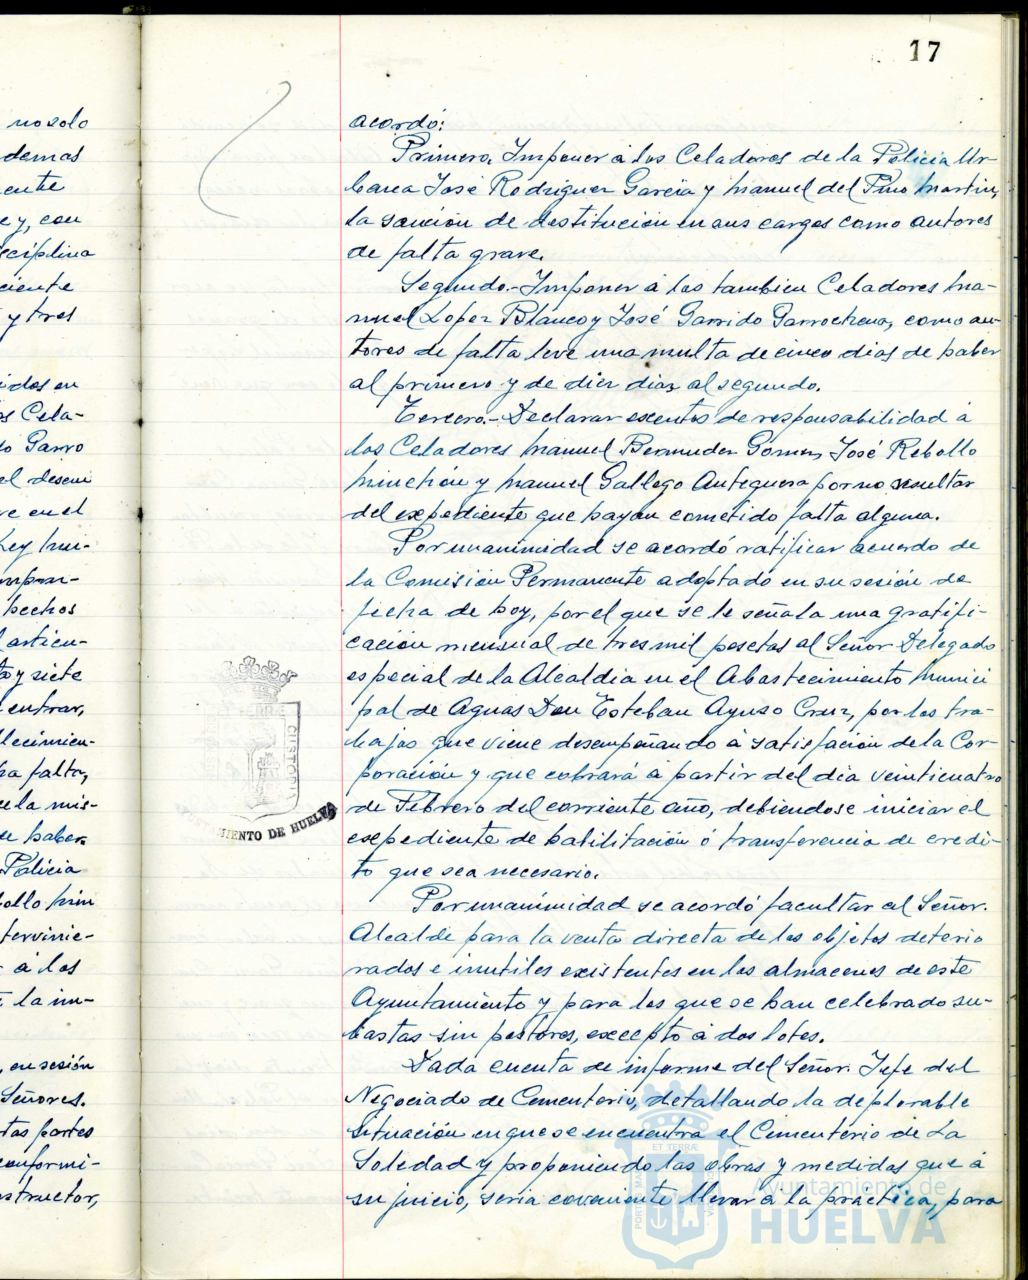 17
no solo
demas
ente
e y, con
sciplina
ciente
y tres
idos en
os Cela-
do Garro
el desem
ve en el
Ley Mu-
hechos
l articu-
to y siete
entrar,
lecimien-
ha falta,
de la mis-
de haber
Policia
bollo Min
tervinie-
r á los
t la im-
, en sesión
Señores.
tas partes
conformi-
structor,
acordó:
Primero. Imponer á los Celadores de la Policia Ur-
bana José Rodriguez Garcia y Manuel del Pino Martin,
la sanción de destitución en sus cargos como autores
de falta grave.
Segundo.- Imponer á los tambien Celadores Ma-
nuel Lopez Blanco y José Garrido Garrochena, como au-
tores de falta leve una multa de cinco dias de haber
al primero y de diez dias al segundo.
Tercero.- Declarar exentos de responsabilidad á
los Celadores Manuel Bermudez Gomez, José Rebollo
Minchón y Manuel Gallego Antequera por no resultar
del expediente que hayan cometido falta alguna.
Por unanimidad se acordó ratificar acuerdo de
la Comisión Permanente adoptado en su sesión de
fecha de hoy, por el que se le señala una gratifi-
cación mensual de tres mil pesetas al Señor Delegado
especial de la Alcaldia en el Abastecimiento Munici
pal de Aguas Don Esteban Ayuso Cruz, por los tra-
bajos que viene desempeñando á satisfación de la Cor-
poración y que cobrará á partir del dia veinticuatro
de Febrero del corriente año, debiendose iniciar el
expediente de habilitación ó transferencia de credi-
to que sea necesario.
Por unanimidad se acordó facultar al Señor.
Alcalde para la venta directa de los objetos deterio
rados e inutiles existentes en los almacenes de este
Ayuntamiento y para los que se han celebrado su-
bastas sin postores, excepto á dos lotes.
Dada cuenta de informe del Señor. Jefe del
Negociado de Cementerio, detallando la deplorable
situación en que se encuentra el Cementerio de La
Soledad y proponiendo las obras y medidas que á
su juicio, seria conveniente llevar á la practica, para
MIENTO DE HUELVA
Ayuntamiento de
HUELVA